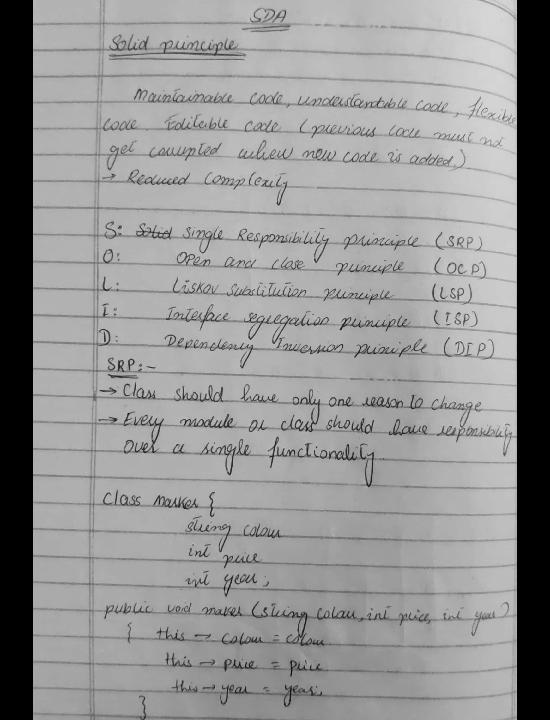 SDA
Solid principle
Maintainable code, understandable code, flexible
code. Editable code (previous code must not
get corrupted when new code is added.)
→ Reduced Complexity
S: Solid Single Responsibility principle (SRP)
O: Open and close principle (OCP)
L: Liskov substitution principle (LSP)
I: Interface segregation principle (ISP)
D: Dependency Inversion principle (DIP)
SRP:-
→ Class should have only one reason to change
→ Every module or class should have responsibility
over a single functionality.
Class Marker {
string colour
int price
int year;
public void maker (string colour, int price, int year)
{ this → colour = colour
this → price = price
this → year = year;
}